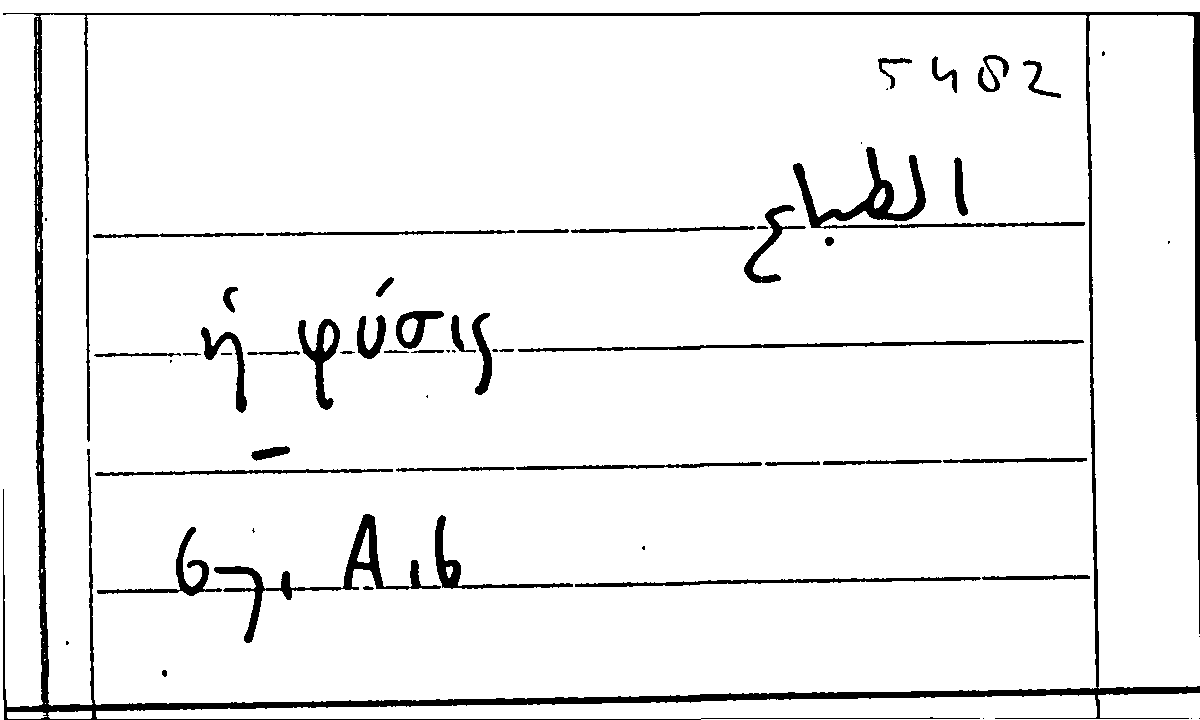 5482
الطبع
ἡ φύσις
–
67, A, 6